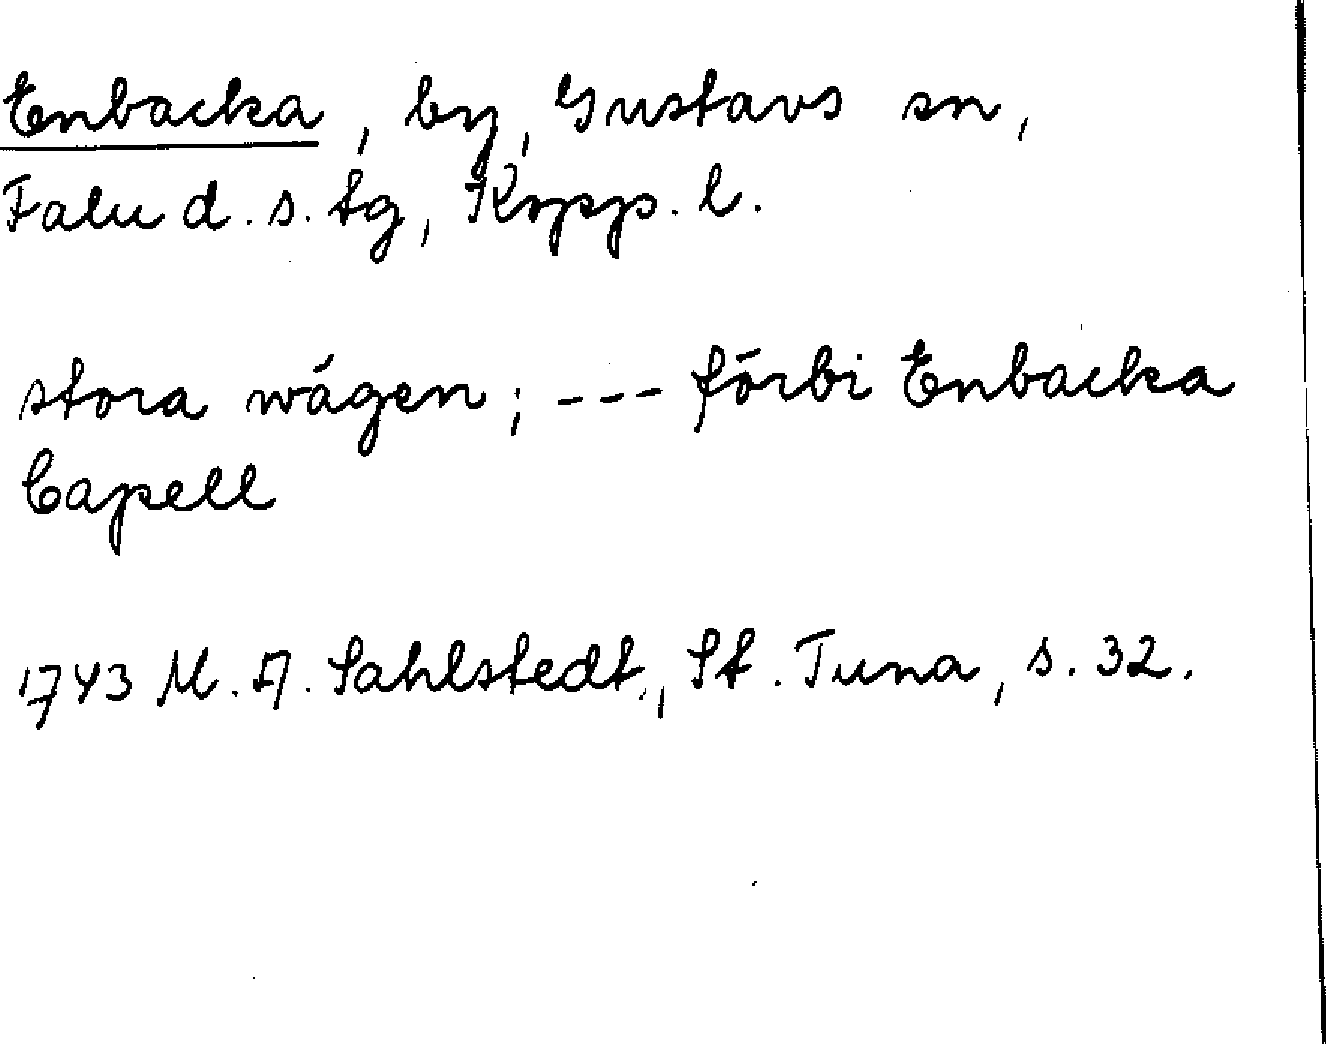 Enbacka, by, Gustavs sn,
Falu d. s. tg, Kopp. l.
stora wågen; --- förbi Enbacka
Capell
1743 M. A. Sahlstedt, St. Tuna, s. 32.